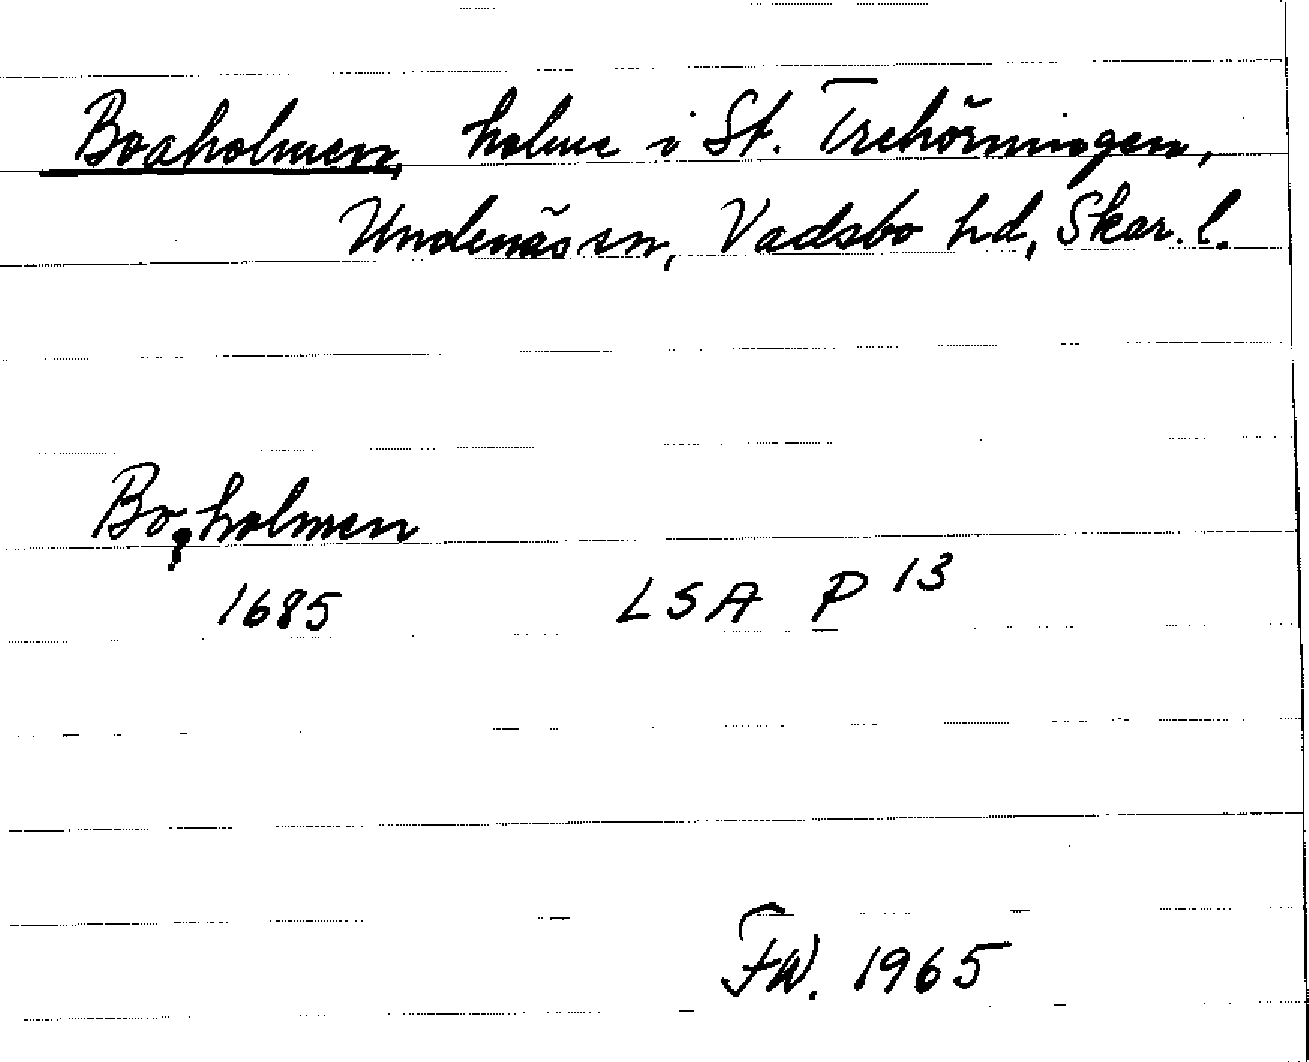 Boaholmen, holme i St. Trehörningen,
Undenäs sn, Vadsbo hd, Skar. l.
Bo,holmen
1685 LSA P 13
FW. 1965